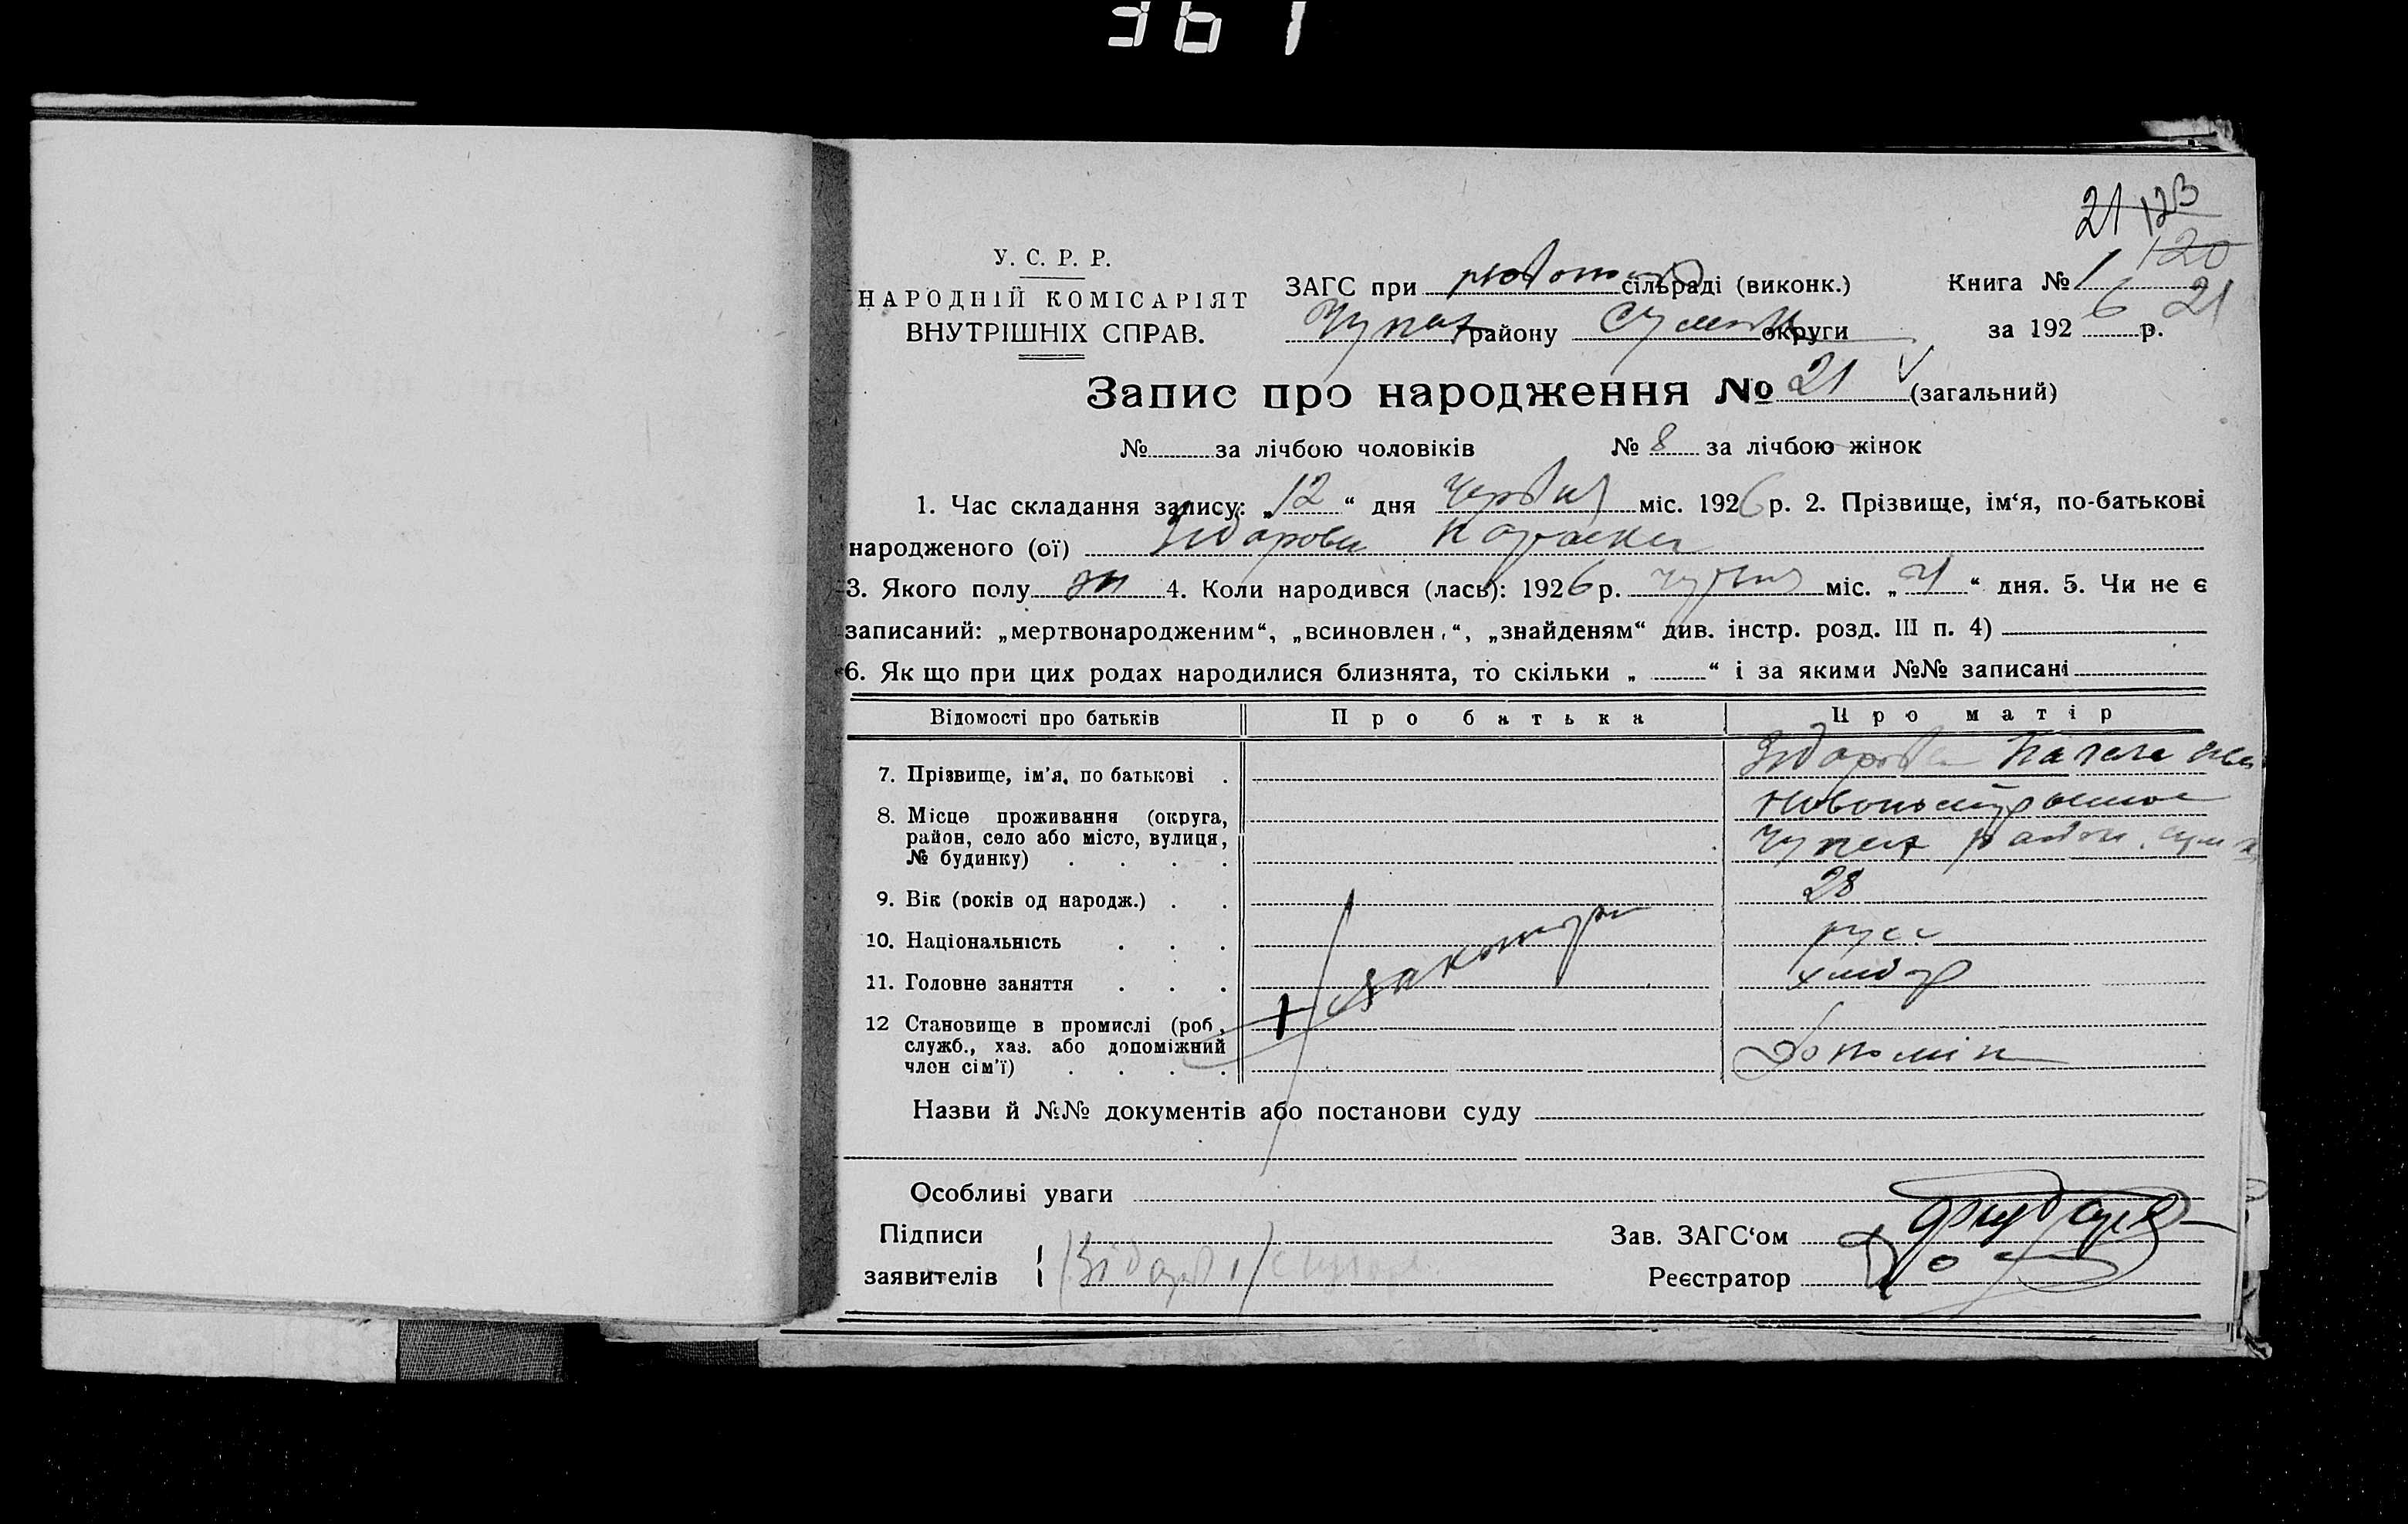 367
21 123
120
У. С. Р. Р.
НАРОДНІЙ КОМІСАРІЯТ
ВНУТРІШНІХ СПРАВ.
ЗАГС при сільраді (виконк.)
Чупах району Сумськ округи
Книга № 1 21
за 192 6 р.
Запис про народження № 21 (загальний)
№ за лічбою чоловіків № 8 за лічбою жінок
1. Час складання запису: „ 12 “ дня червня міс. 192 6 р. 2. Прізвище, ім‘я, по-батькові
народженого (ої)
3. Якого полу жи 4. Коли народився (лась): 192 6 р. міс. „ “ дня. 5. Чи не є
записаний: „мертвонародженим“, „всиновлен.“, „знайденям“ див. інстр. розд. III п. 4)
6. Як що при цих родах народилися близнята, то скільки „ “ і за якими №№ записані
Відомості про батьків Про батька Про матір
7. Прізвище, ім'я, по батькові .
8. Місце проживання (округа,
район, село або місто, вулиця,
№ будинку) . . . . Чупах район.
9. Вік (років од народж.) . . 28
10. Національність . . . русс
11. Головне заняття . . . хлібор
12 Становище в промислі (роб.,
служб., хаз. або допоміжний
член сім'ї) . . . . Допоміж
Назви й №№ документів або постанови суду
Особливі уваги
Підписи
заявителів
Зав. ЗАГС‘ом
Реєстратор